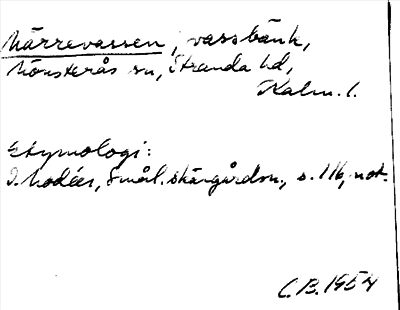 Märrevassen, vassbänk,
Mönsterås sn, Stranda hd,
Kalm. l.
Etymologi:
I. Modéer, Smål. skärgårdsn., s. 116, not.
C.B. 1954